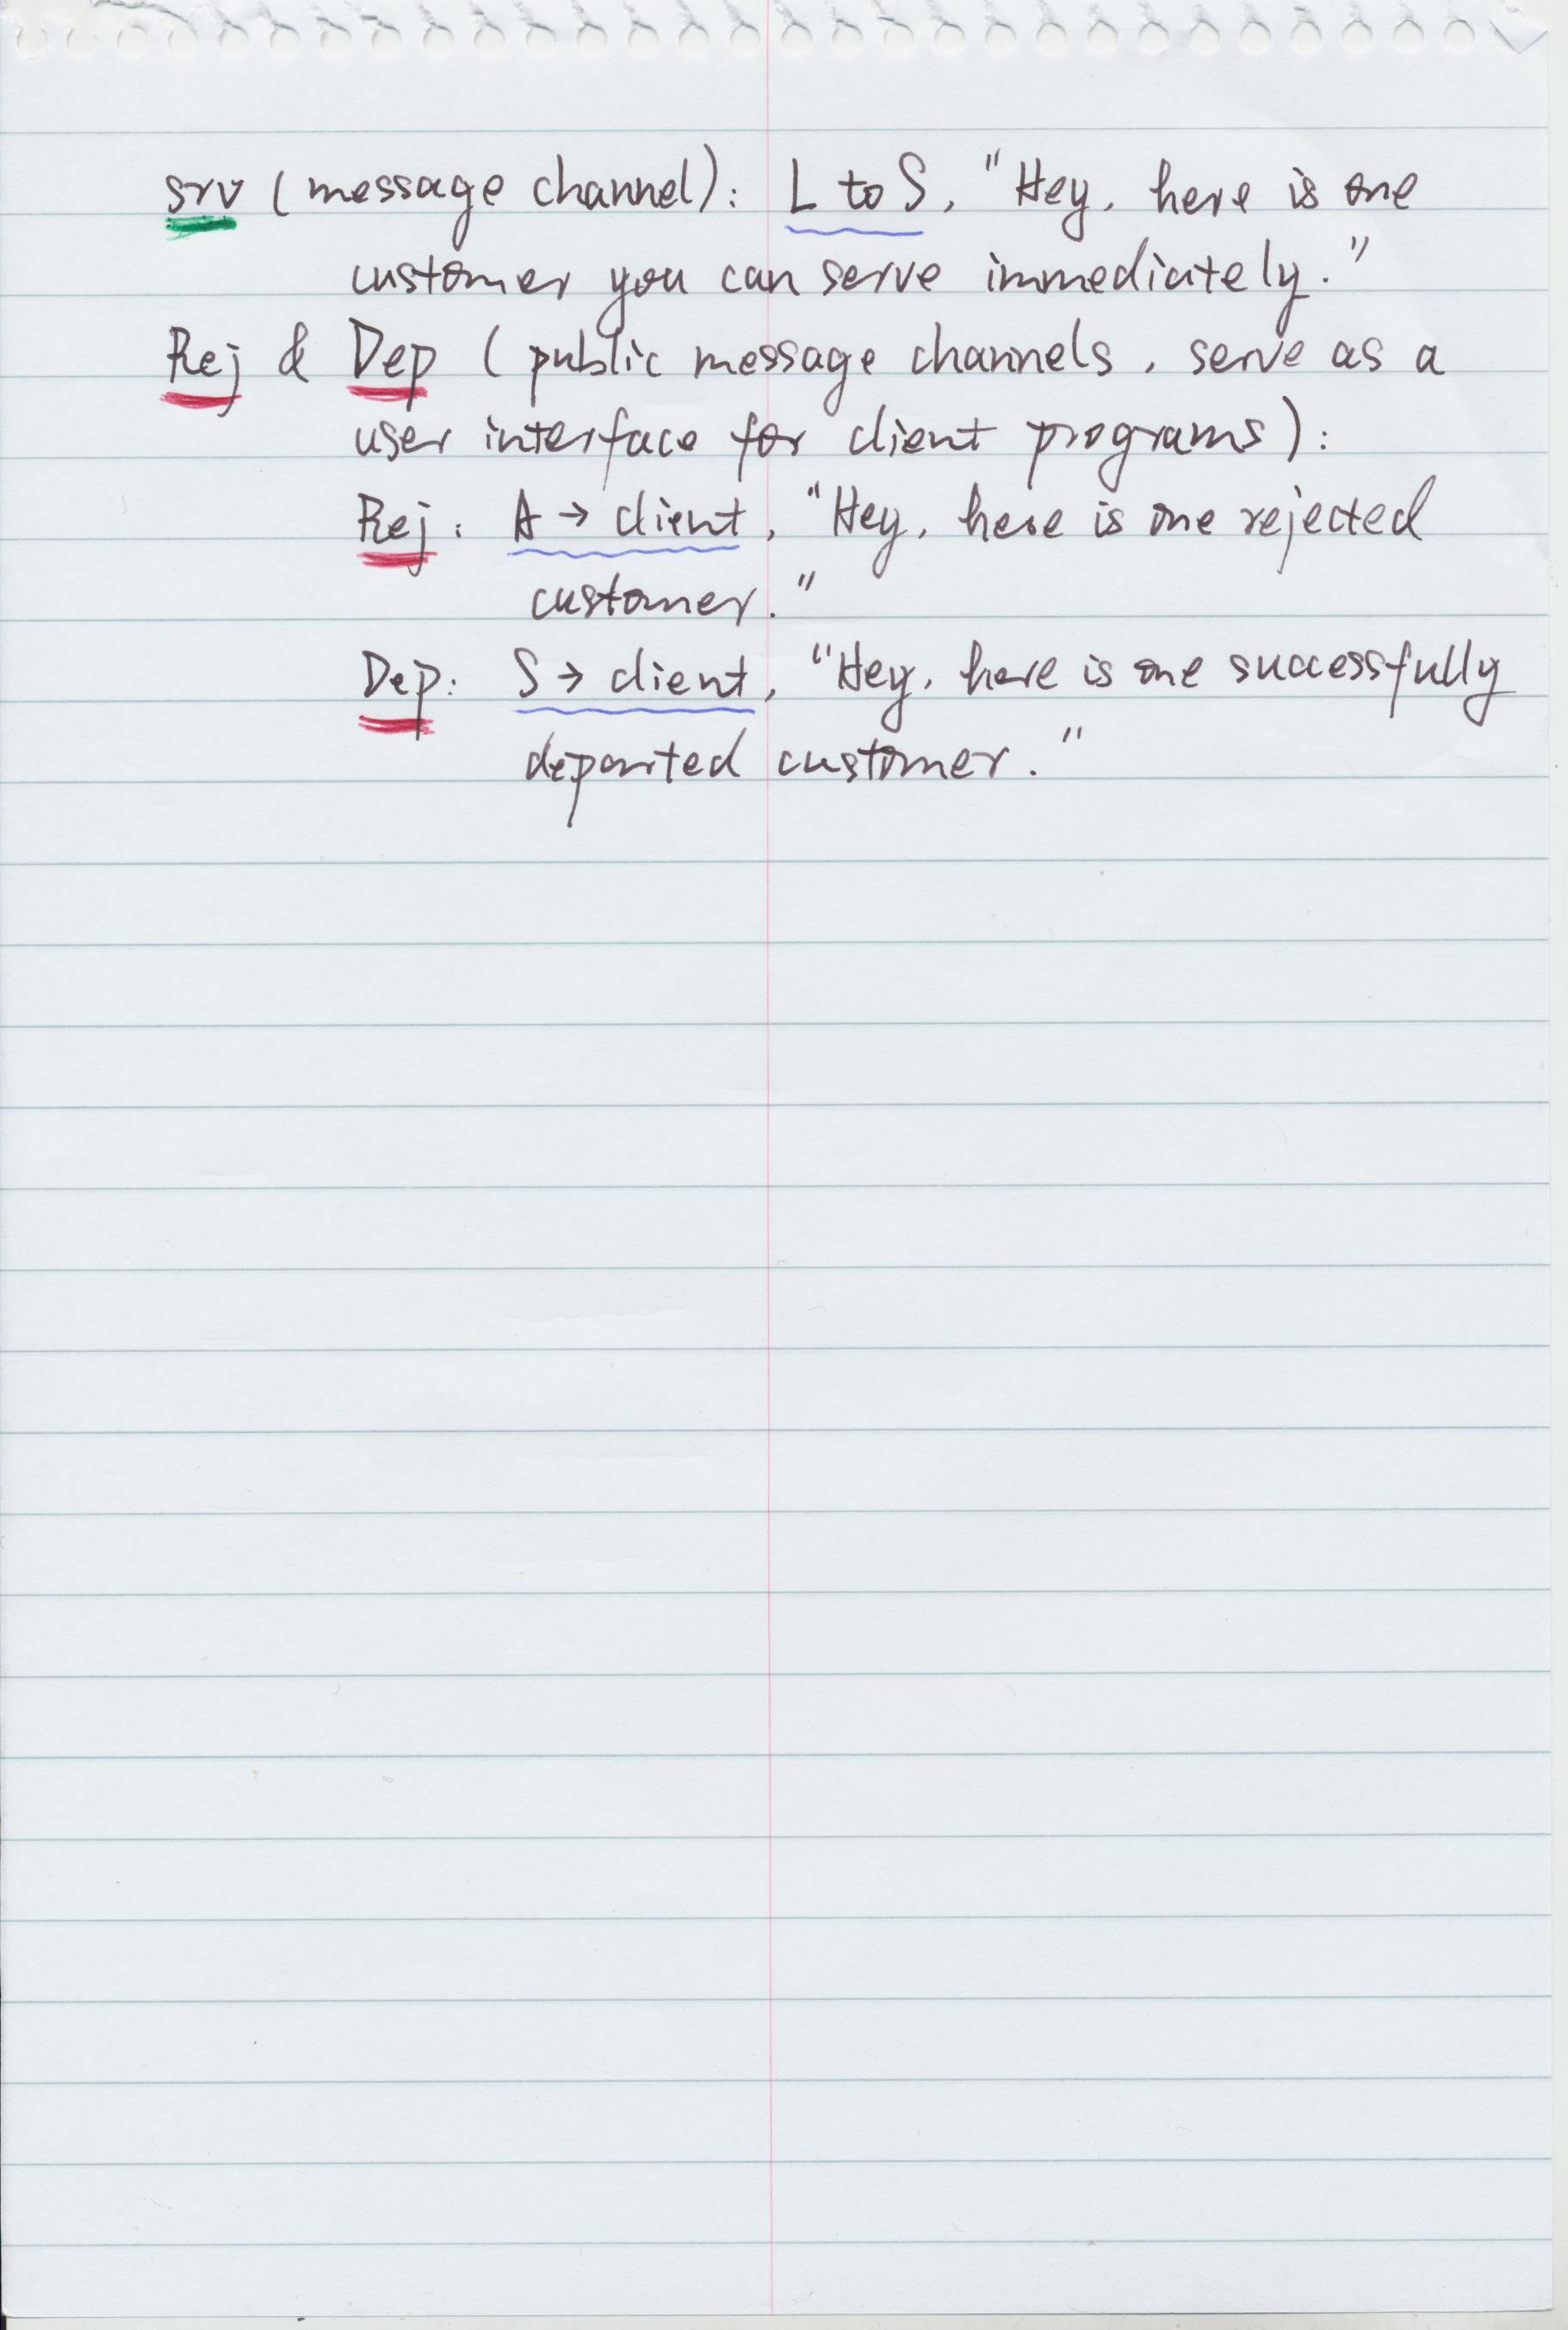 srv (message channel): L to S, "Hey, here is one
customer you can serve immediately."
Rej & Dep (public message channels, serve as a
user interface for client programs):
Rej: A → client, "Hey, here is one rejected
customer."
Dep: S → client, "Hey, here is one successfully
departed customer."